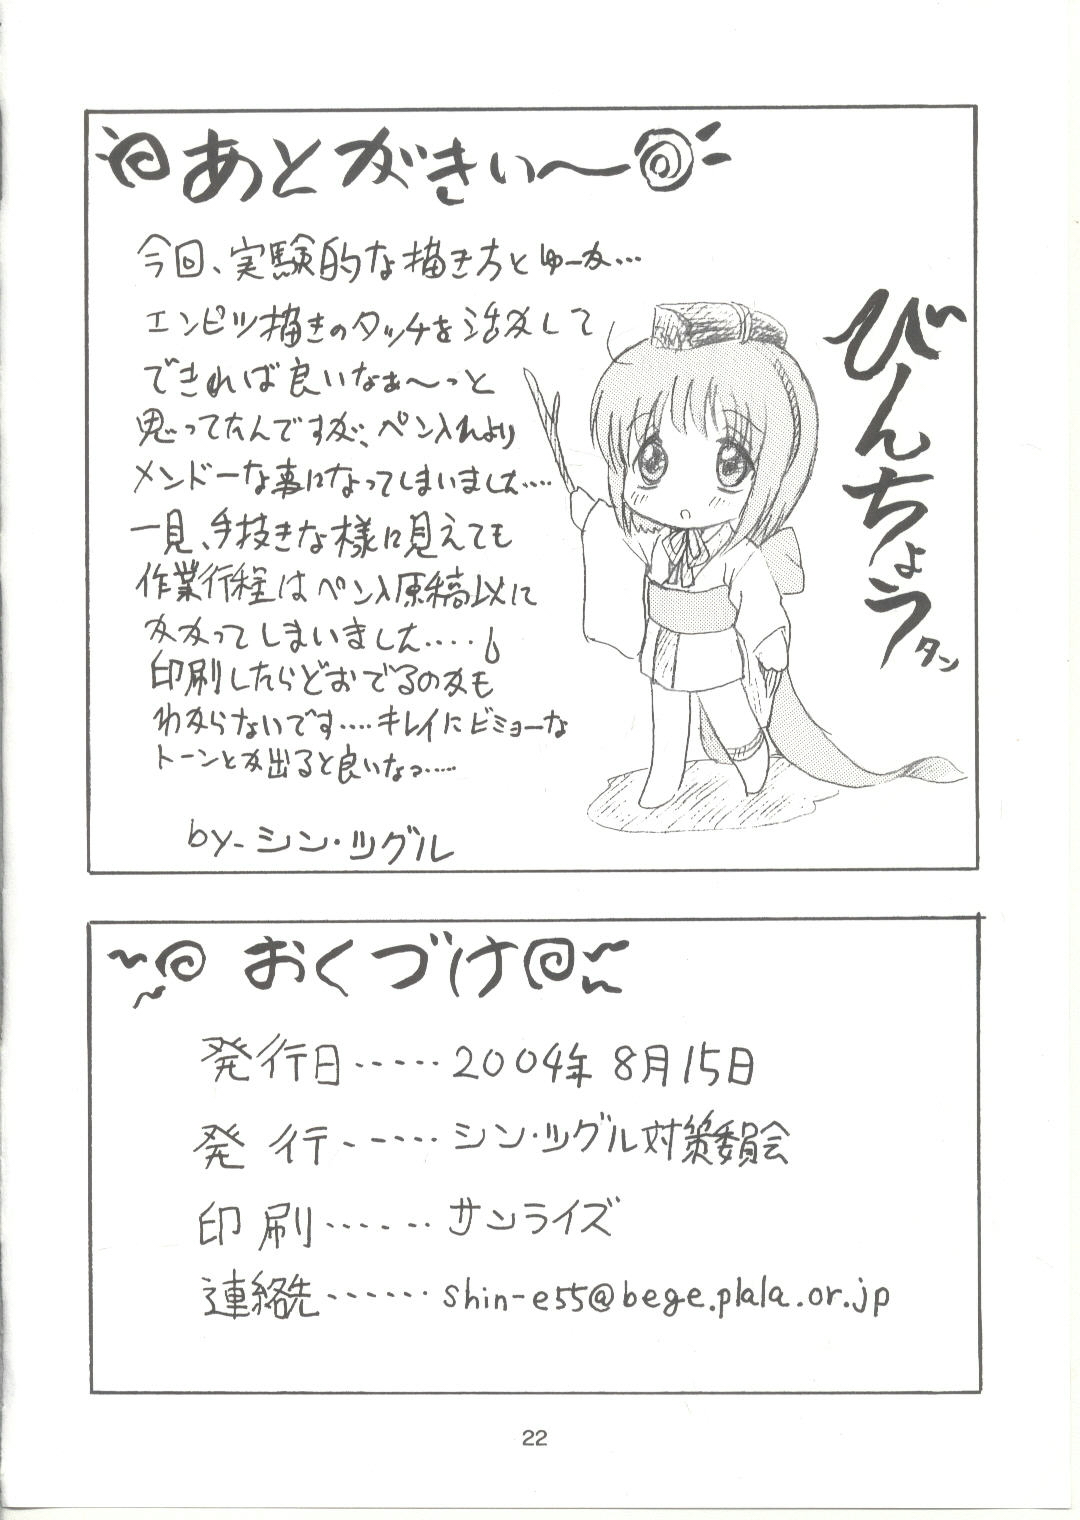 あとがきぃ〜
今回、実験的な描き方とゆーか…
エンピツ描きのタッチを活かして
できれば良いなぁ〜っと
思ってたんですが、ペン入れより
メンドーな事になってしまいました….
一見、手抜きな様に見えても
作業行程はペン入原稿以に
かかってしまいました….
印刷したらどおでるのかも
わからないです…..キレイにビミョーな
トーンとか出ると良いなっ…..
by-シン・ツグル
びんちょうタン
おくづけ
発行日‥‥‥2004年 8月15日
発 行‥‥‥シン・ツグル対策委員会
印 刷‥‥‥サンライズ
連絡先‥‥‥shin-e55@bege.plala.or.jp
22